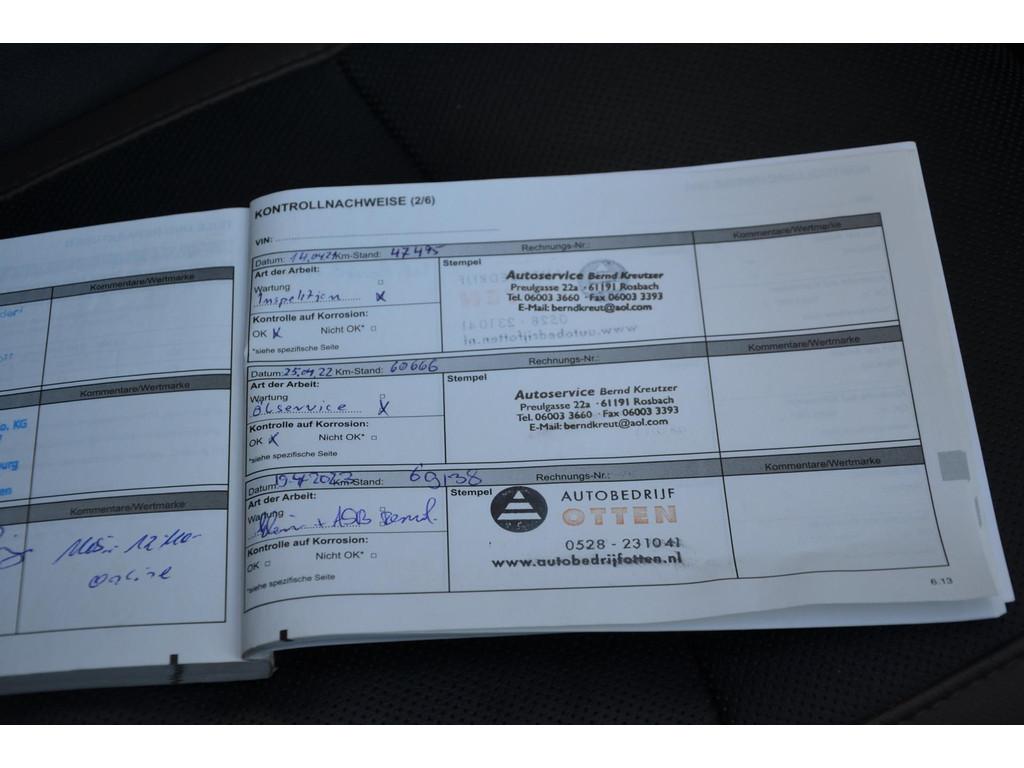 Kommentare/Wertmarke
Kommentare/Wertmarke
o. KG
urg
en
Kommentare/Wertmarke
online
KONTROLLNACHWEISE (2/6)
VIN:
Datum: 14.04.21 Km-Stand: 47495 Rechnungs-Nr.: Kommentare/Wertmarke
Art der Arbeit:
Wartung
Inspektion x
Kontrolle auf Korrosion:
OK x Nicht OK*
*siehe spezifische Seite
Stempel
Autoservice Bernd Kreutzer
Preulgasse 22a · 61191 Rosbach
Tel. 06003 3660 · Fax 06003 3393
E-Mail: berndkreut@aol.com
Datum: 25.04.22 Km-Stand: 60666 Rechnungs-Nr.: Kommentare/Wertmarke
Art der Arbeit:
Wartung
Ölservice x
Kontrolle auf Korrosion:
OK x Nicht OK*
*siehe spezifische Seite
Stempel
Autoservice Bernd Kreutzer
Preulgasse 22a · 61191 Rosbach
Tel. 06003 3660 · Fax 06003 3393
E-Mail: berndkreut@aol.com
Datum: 19-4-2023 Km-Stand: 69138 Rechnungs-Nr.: Kommentare/Wertmarke
Art der Arbeit:
Wartung
Kontrolle auf Korrosion:
OK Nicht OK*
*siehe spezifische Seite
Stempel
AUTOBEDRIJF
OTTEN
0528 - 231041
www.autobedrijfotten.nl
6.13